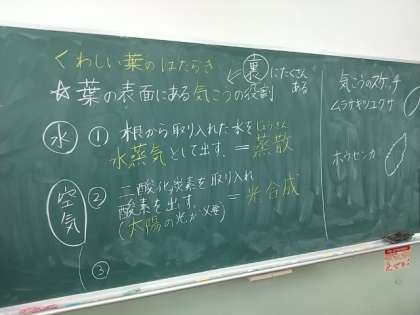 くわしい葉のはたらき
☆葉の表面にある気こうの役割
裏にたくさん
ある
水 ① 根から取り入れた水を
水蒸気として出す。= 蒸散
じょうさん
空気 ② 二酸化炭素を取り入れ
酸素を出す。 = 光合成
(太陽の光が必要)
③
気こうのスケッチ
ムラサキツユクサ
ホウセンカ